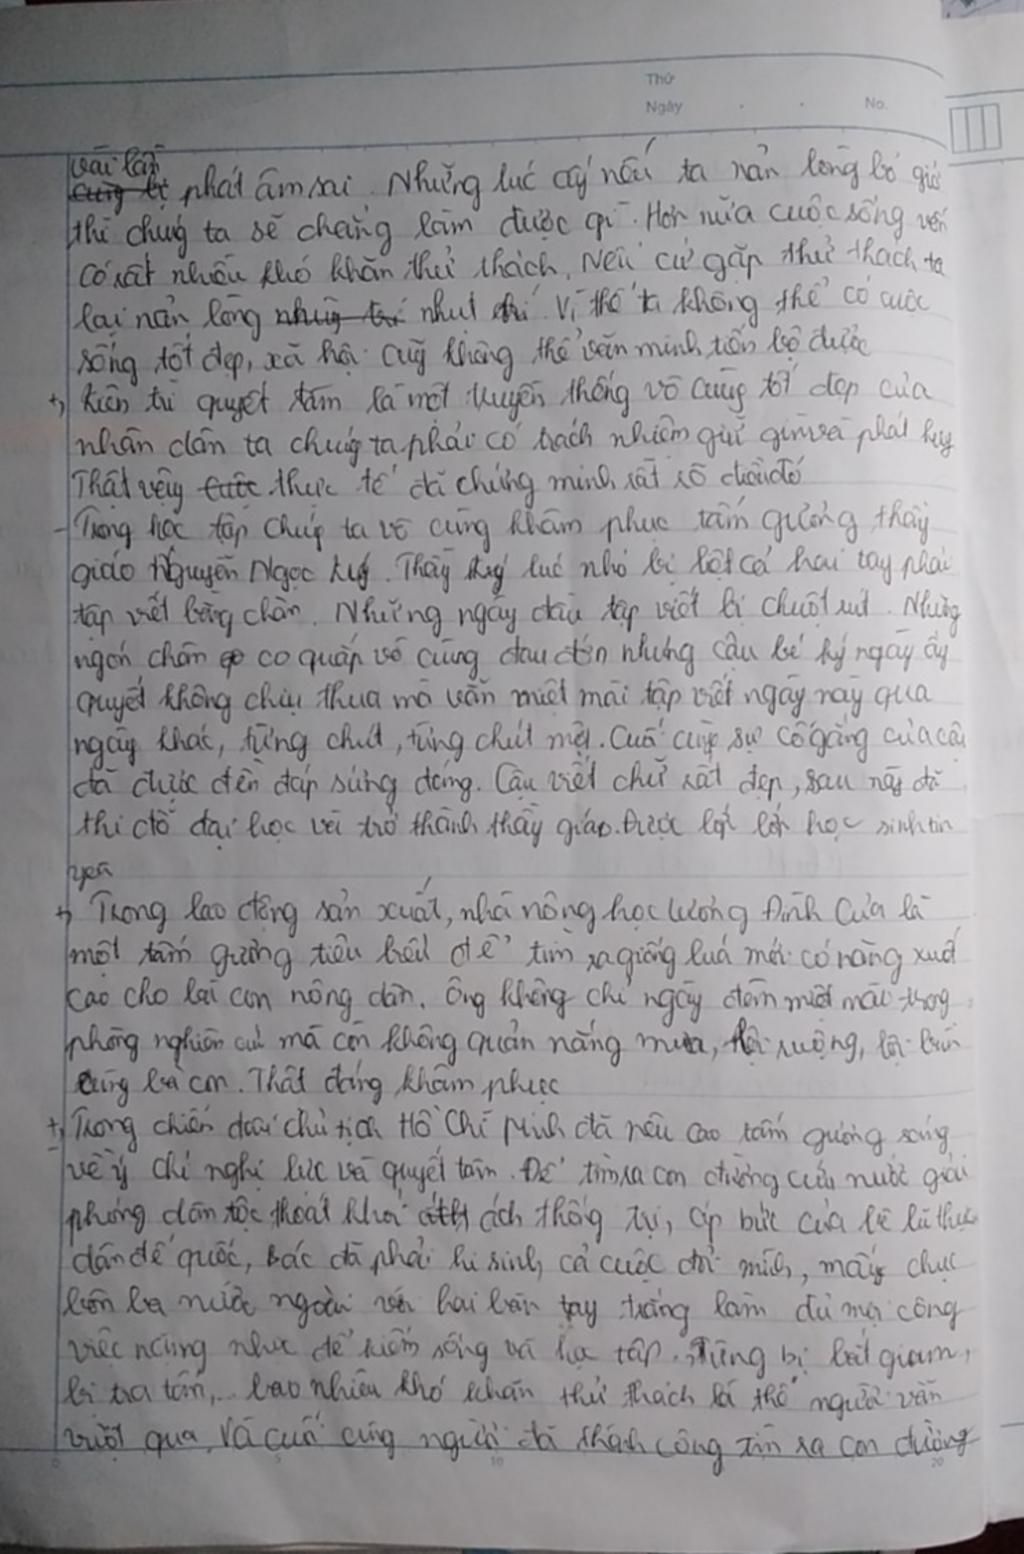 Thứ
Ngày . . No.
vài lần
phát âm sai. Những lúc ấy nếu ta nản lòng bỏ giở
thì chúng ta sẽ chẳng làm được gì. Hơn nữa cuộc sống vốn
có rất nhiều khó khăn thử thách. Nếu cứ gặp thử thách ta
lại nản lòng nhụt chí. Vì thế ta không thể có cuộc
sống tốt đẹp, xã hội cũg không thể văn minh, tiến bộ được
+, kiên trì quyết tâm là một truyền thống vô cùng tốt đẹp của
nhân dân ta chúng ta phải có trách nhiệm giữ gìn và phát huy
Thật vậy thực tế đã chứng minh rất rõ điều đó
- Trong học tập chúng ta vô cùng khâm phục tấm gương thầy
giáo Nguyễn Ngọc Ký. Thầy Ký lúc nhỏ bị liệt cả hai tay phải
tập viết bằng chân. Những ngày đầu tập viết bị chuột rút. Những
ngón chân co quắp vô cùng đau đớn nhưng cậu bé Ký ngày ấy
quyết không chịu thua mà vẫn miệt mài tập viết ngày này qua
ngày khác, từng chút, từng chút một. Cuối cùng, sự cố gắng của cậu
đã được đền đáp xứng đáng. Cậu viết chữ rất đẹp, sau này đã
thi đỗ đại học và trở thành thầy giáo. Được lớp lớp học sinh tin
yêu
+, Trong lao động sản xuất, nhà nông học Lương Đình Của là
một tấm gương tiêu biểu để tìm ra giống luá mới có năng xuất
cao cho bà con nông dân. Ông không chỉ ngày đêm miệt mài trong
phòng nghiên cứu mà còn không quản nắng mưa, lội ruộng, lội bùn
cùng bà con. Thật đáng khâm phục
+, Trong chiến đấu chủ tịch Hồ Chí Minh đã nêu cao tấm gương sáng
về ý chí nghị lực và quyết tâm. Để tìm ra con đường cứu nước giải
phóng dân tộc thoát khỏi ách thống trị, áp bức của bè lũ thực
dân đế quốc, Bác đã phải hi sinh cả cuộc đời mình, mấy chục
bôn ba nước ngoài với hai bàn tay trắng làm đủ mọi công
việc nặng nhọc để kiếm sống và học tập. Từng bị bắt giam,
bị tra tấn,.. bao nhiêu khó khăn thử thách là thế người vẫn
vượt qua. Và cuối cùng người đã thành công tìm ra con đường